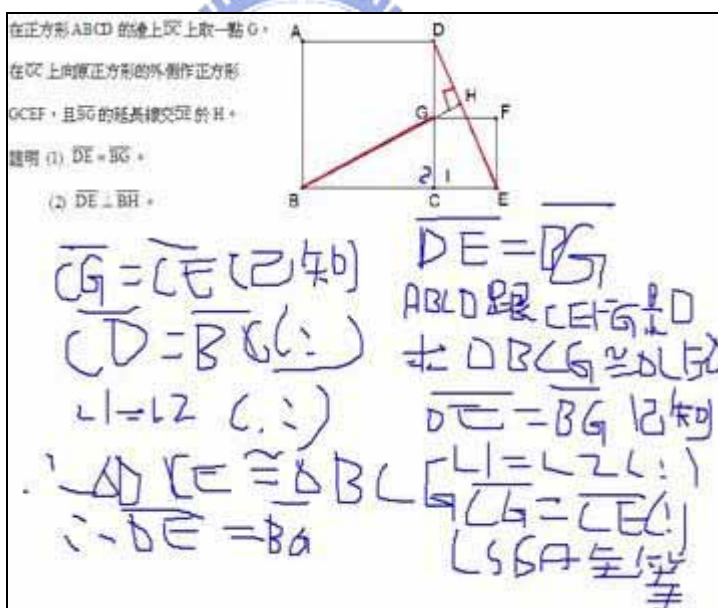 在正方形ABCD 的邊上DC上取一點 G,
在GC上向原正方形的外側作正方形
GCEF,且BG的延長線交DE於 H。
證明 (1) DE=BG。
(2) DE⊥BH。
A D
H
G F
2 1
B C E
CG=CE(已知)
CD=BC(∵)
∠1=∠2(∵)
∴△DCE≅△BCG
∴DE=BG
DE=BG
ABCD跟CEFG是□
△BCG≅
=BG 已知
∠1=∠2(∵)
CG=CE(∵)